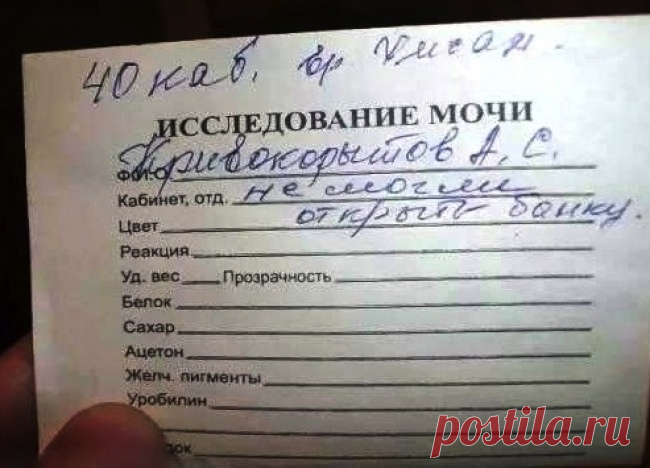 40 каб. вр
ИССЛЕДОВАНИЕ МОЧИ
Ф.И.О. Кривокорытов А. С.
Кабинет, отд. не могли
Цвет открыть банку.
Реакция
Уд. вес Прозрачность
Белок
Сахар
Ацетон
Желч. пигменты
Уробилин
postila.ru